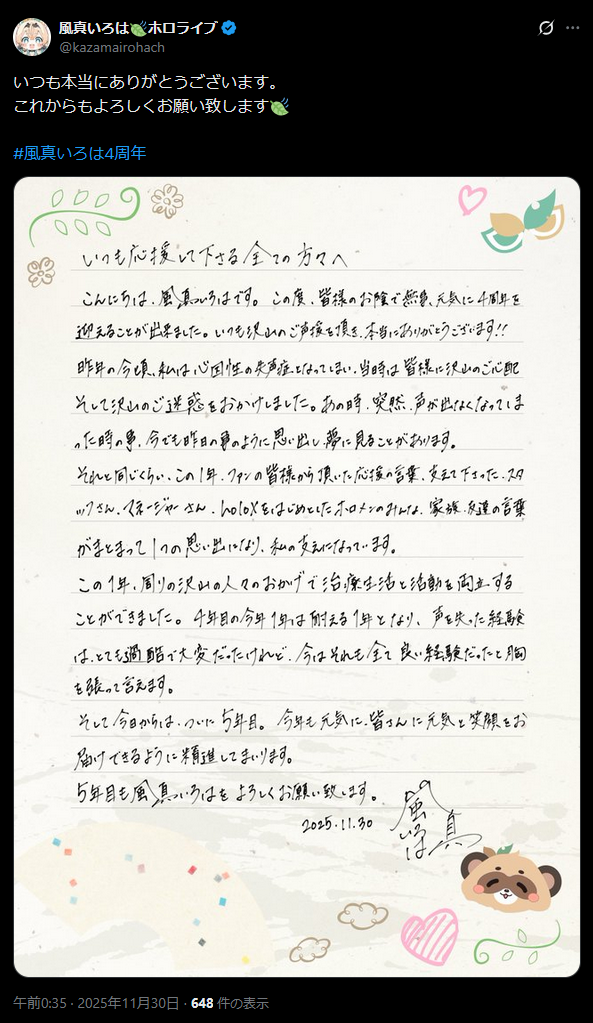 風真いろは🍃ホロライブ
@kazamairohach
いつも本当にありがとうございます。
これからもよろしくお願い致します🍃
#風真いろは4周年
いつも応援して下さる全ての方々へ
こんにちは、風真いろはです。この度、皆様のお陰で無事、元気に4周年を
迎えることが出来ました。いつも沢山のご声援を頂き、本当にありがとうございます!!
昨年の今頃、私は心因性の失声症となってしまい、当時は皆様に沢山のご心配
そして沢山のご迷惑をおかけしました。あの時、突然、声が出なくなってしま
った時の事、今でも昨日の事のように思い出し、夢に見ることがあります。
それと同じくらい、この1年、ファンの皆様から頂いた応援の言葉、支えて下さった、スタ
ッフさん、マネージャーさん、holoXをはじめとしたホロメンのみんな、家族、友達の言葉
がまとまって1つの思い出になり、私の支えになっています。
この1年、周りの沢山の人々のおかげで治療生活と活動を両立する
ことができました。4年目の今年1年は耐える1年となり、声を失った経験
は、とても過酷で大変だったけれど、今はそれも全て良い経験だったと胸
を張って言えます。
そして今日からは、ついに5年目。今年も元気に、皆さんに元気と笑顔をお
届けできるように精進してまいります。
5年目も風真いろはをよろしくお願い致します。
2025.11.30
風真いろは
午前0:35 · 2025年11月30日 · 648 件の表示